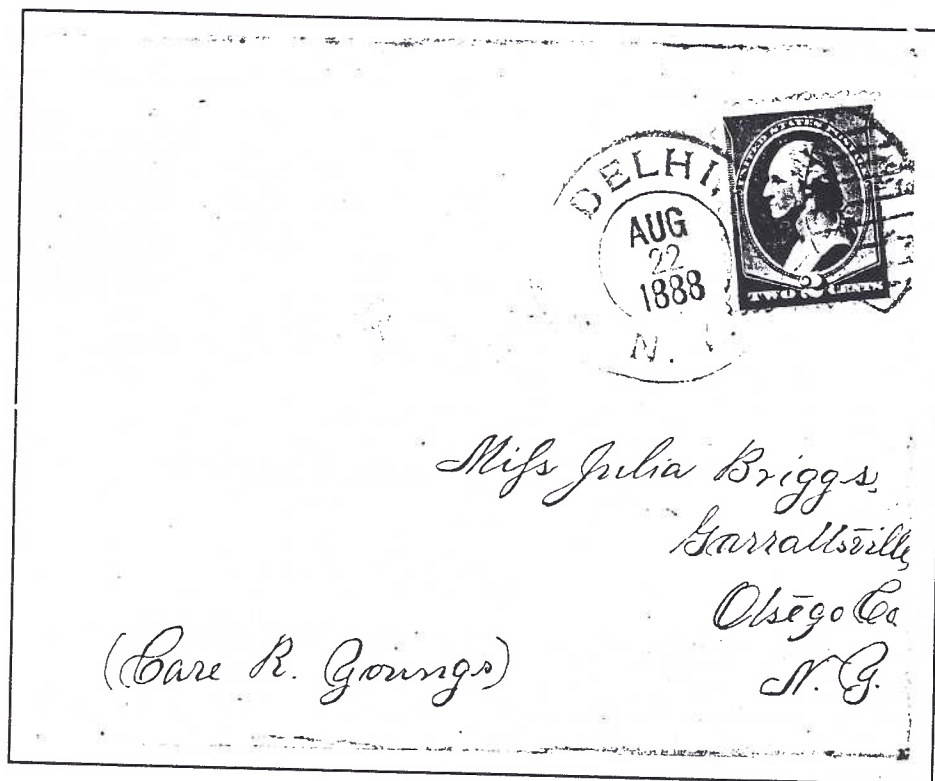 DELHI,
AUG
22
1888
N. Y
UNITED STATES POSTAGE
TWO 2 CENTS
Miss Julia Briggs,
Garrattsville,
Otsego Co
N. Y.
(Care R. Youngs)